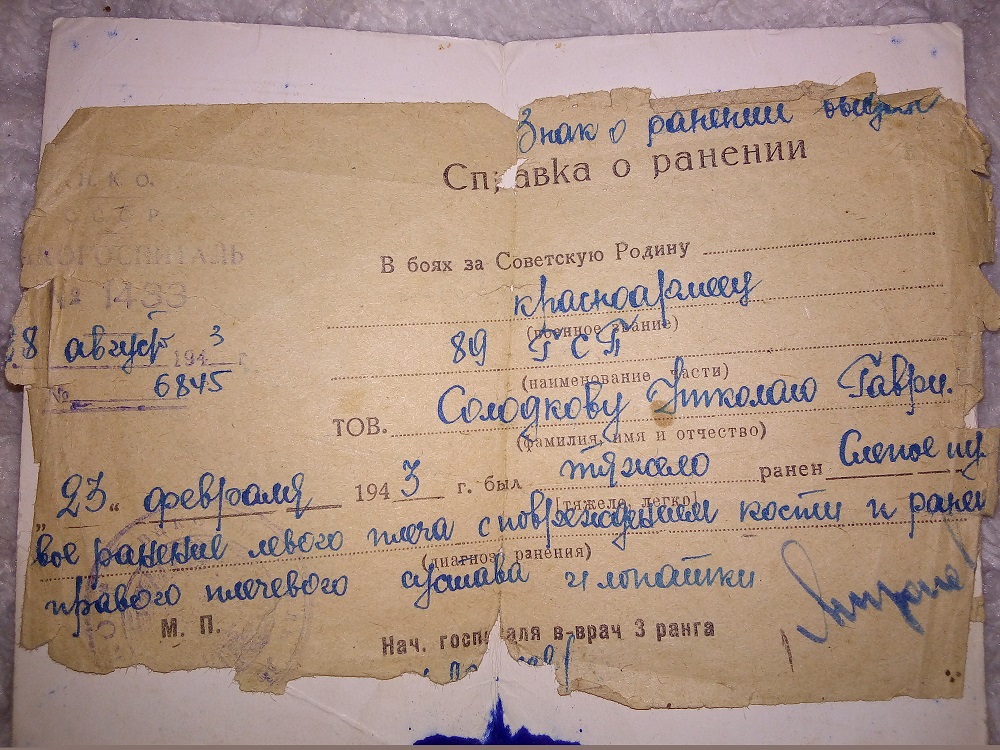 Знак о ранении выдан
Справка о ранении
Н. К. О.
С С С Р
ГОСПИТАЛЬ
№ 1433
В боях за Советскую Родину
красноармеец
(военное звание)
28 август 1943 г.
89 ГСП
№ 6845
(наименование части)
ТОВ. Солодкову Николаю Гаври.
(фамилия, имя и отчество)
„23“ февраля 1943 г. был тяжело ранен Слепое пу
(тяжело, легко)
вое ранение левого плеча с повреждением кости и ранен
(диагноз ранения)
правого плечевого сустава и лопатки
М. П.
Нач. госп аля в-врач 3 ранга